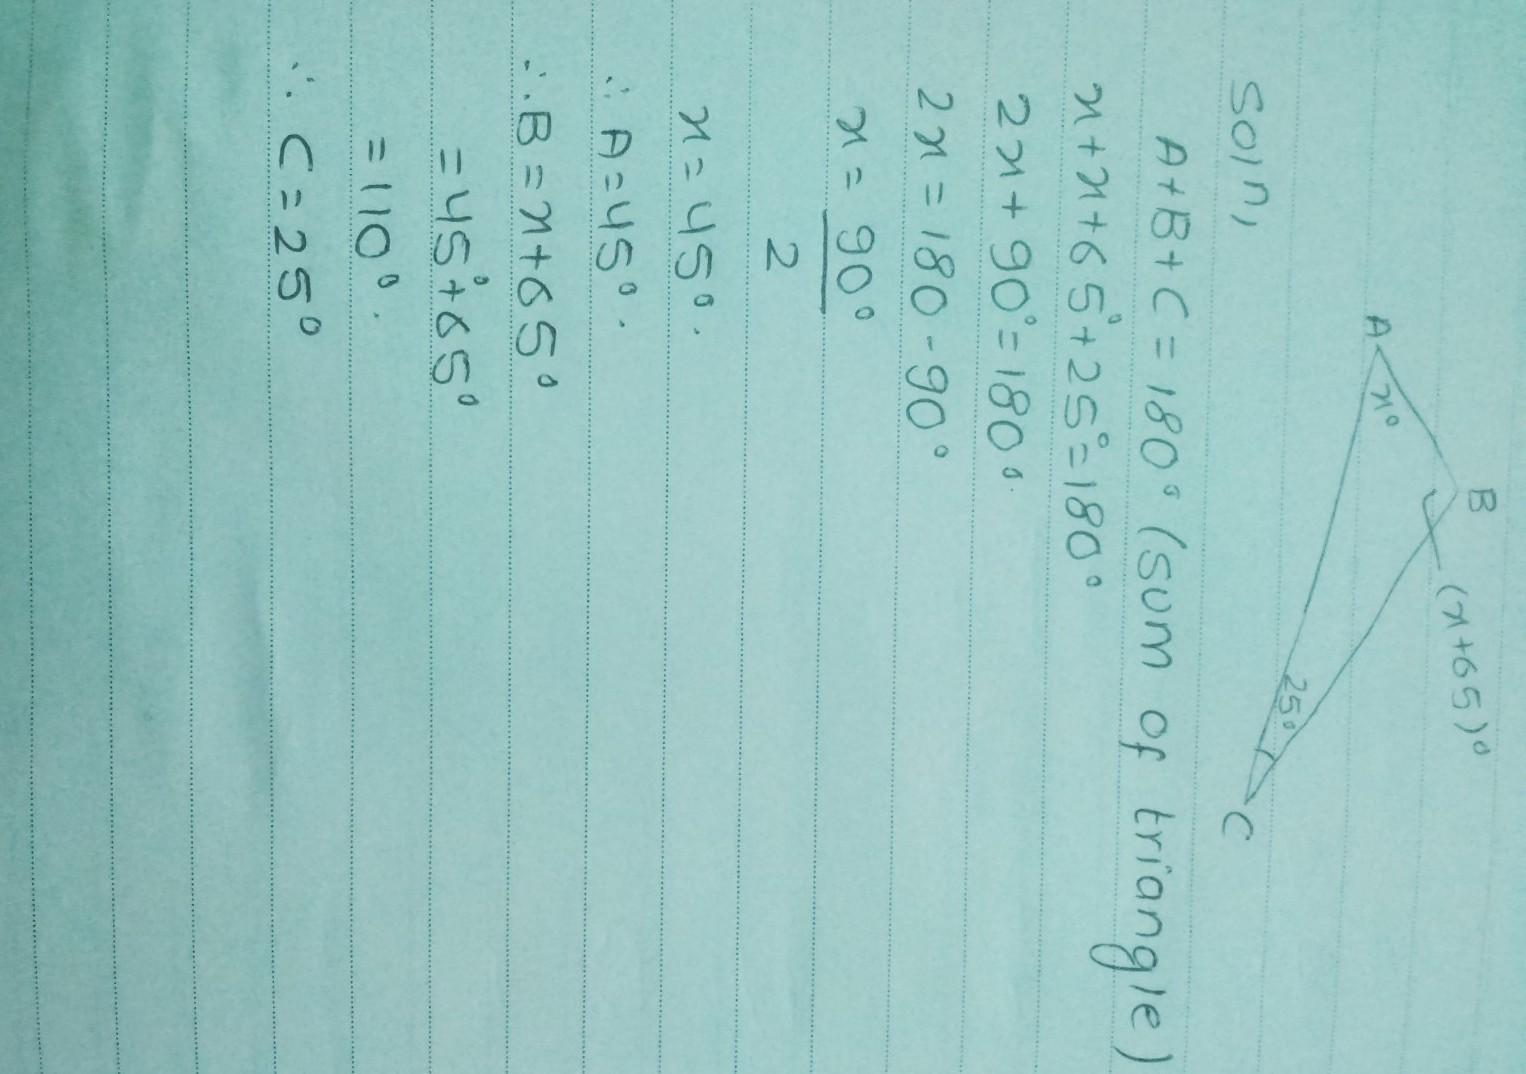 B
(x+65)°
A
x°
25°
C
Soln,
A+B+C = 180° (sum of triangle)
x+x+65°+25°=180°
2x+90°=180°.
2x = 180-90°
x = 90°
2
x=45°.
∴ A=45°.
∴ B=x+65°
=45°+65°
=110°.
∴ C=25°